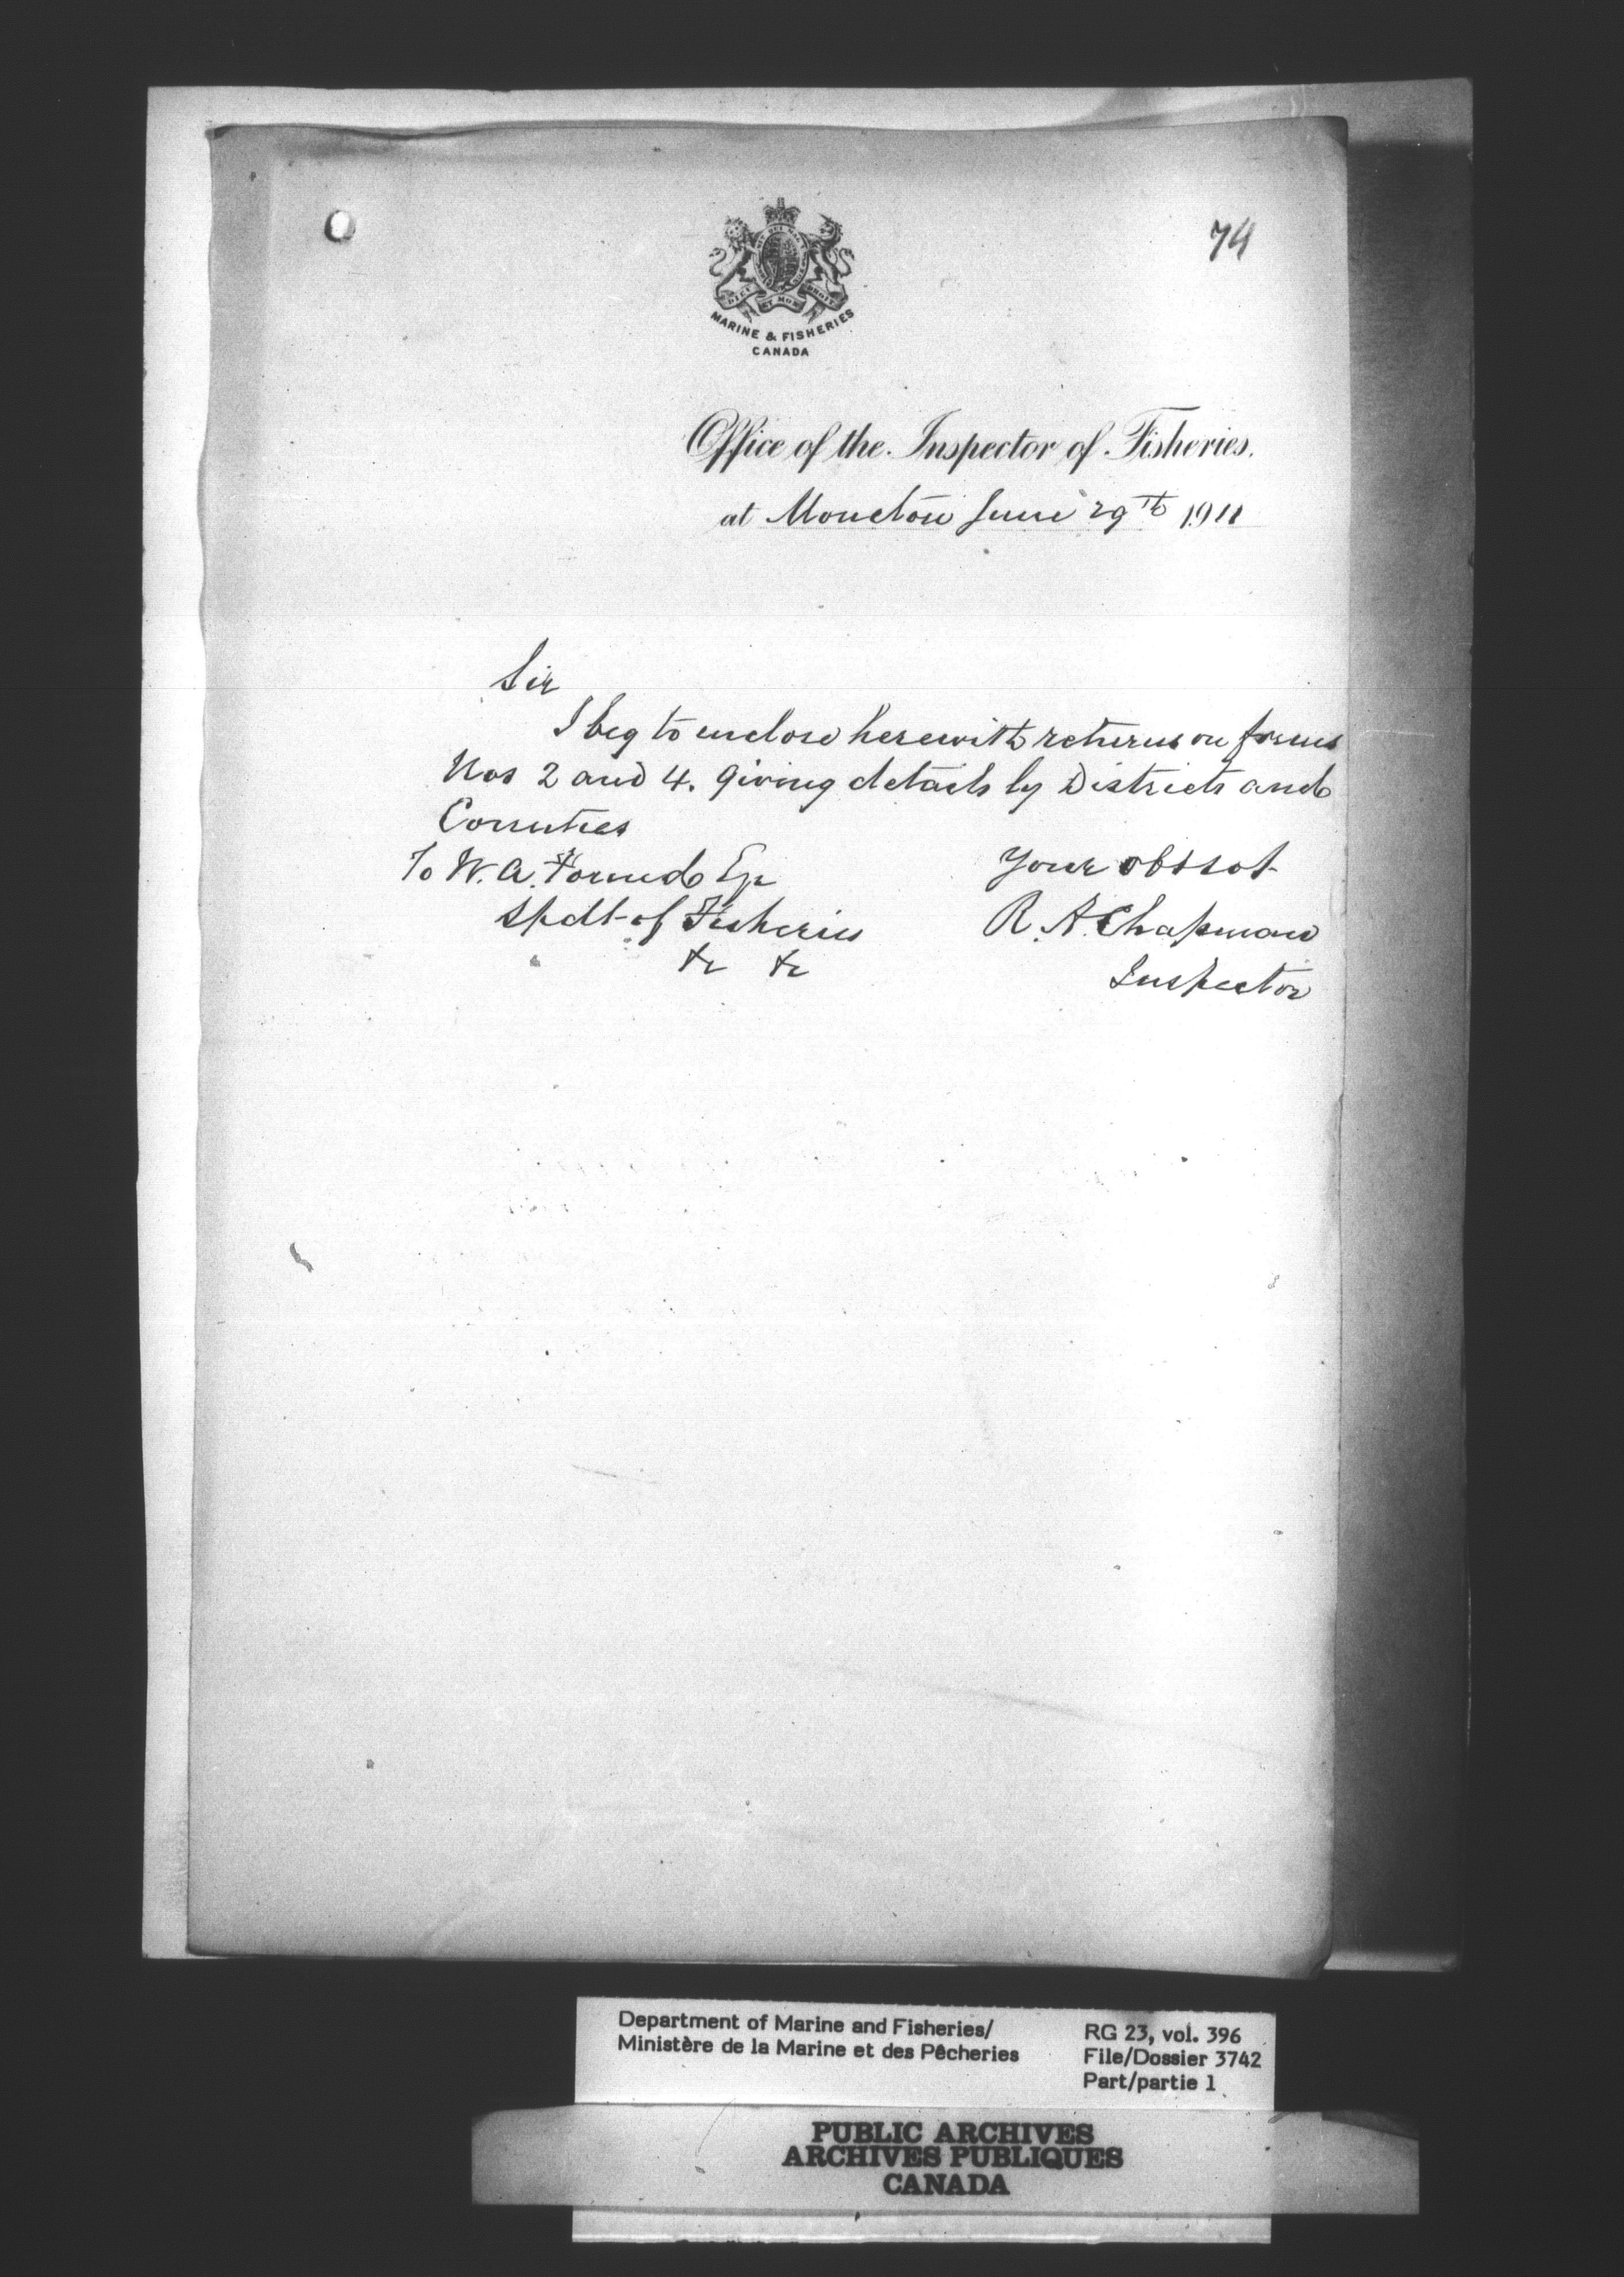 74
DIEU ET MON DROIT
MARINE & FISHERIES
CANADA
Office of the Inspector of Fisheries.
at Moncton June 29th 1911
Sir
I beg to enclose herewith returns on forms
Nos 2 and 4. Giving details by Districts and
Counties
To W. A. Found Esq
Spdt of Fisheries
&c &c
Your obt svt
R. A. Chapman
Inspector
Department of Marine and Fisheries/
Ministère de la Marine et des Pêcheries
RG 23, vol. 396
File/Dossier 3742
Part/partie 1
PUBLIC ARCHIVES
ARCHIVES PUBLIQUES
CANADA